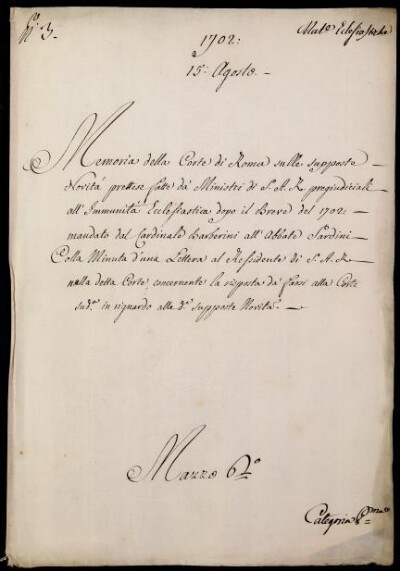 N.° 3.
Mat.e Eclesiastiche
1702:
15: Agosto. -
Memoria della Corte di Roma sulle supposte
Novità pretese fatte da' Ministri di S. A. R. pregiudiciali
all'Immunità Ecclesiastica dopo il Breve del 1702:
mandato dal Cardinale Barberini all'Abbate Sardini
Colla Minuta d'una Lettera al Residente di S. A. R.
nella detta Corte, concernente la risposta da farsi alla Corte
sud.a in riguardo alle d.e supposte Novità. -
Mazzo 6.°
Categoria P.ma